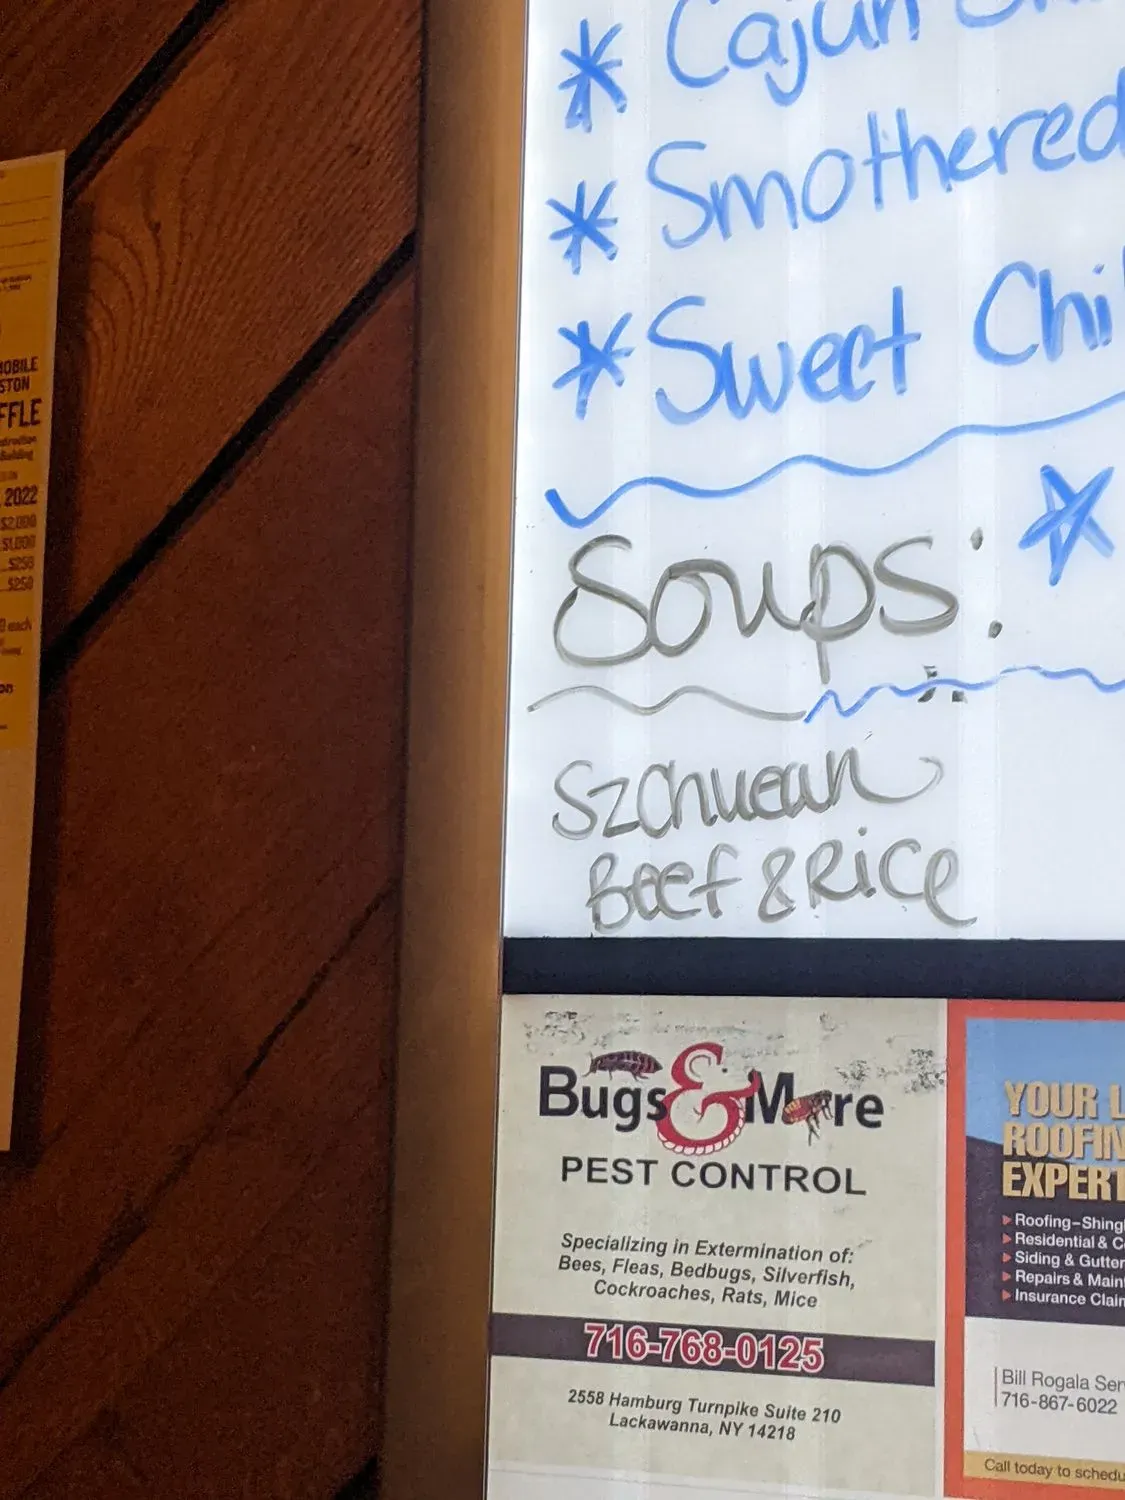 OBILE
STON
FFLE
2022
$2,000
$1,000
$250
$250
each
* Cajun
* Smothered
* Sweet Chi
Soups:
Szchuean
Beef & Rice
Bugs & More
PEST CONTROL
Specializing in Extermination of:
Bees, Fleas, Bedbugs, Silverfish,
Cockroaches, Rats, Mice
716-768-0125
2558 Hamburg Turnpike Suite 210
Lackawanna, NY 14218
YOUR L
ROOFIN
EXPERT
Roofing-Shingl
Residential & C
Siding & Gutter
Repairs & Maint
Insurance Claim
Bill Rogala Ser
716-867-6022
Call today to schedu